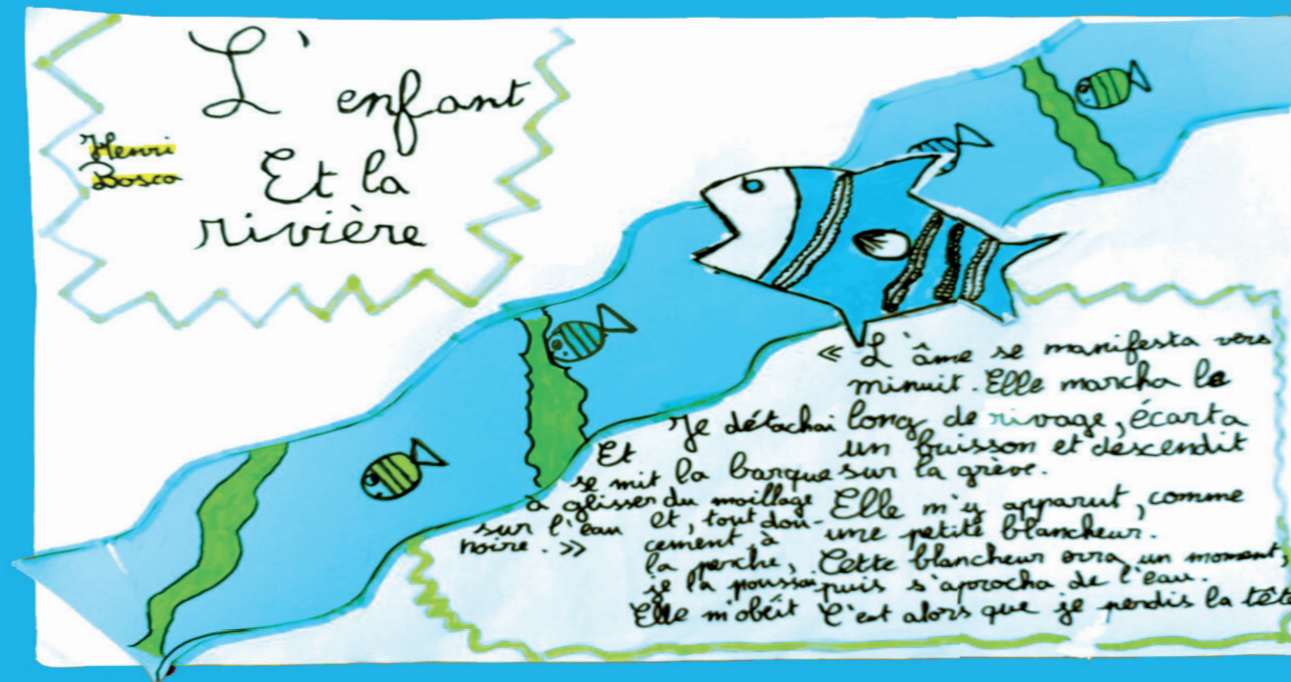 L'enfant
Et la
rivière
Henri
Bosco
« L'âme se manifesta vers
minuit. Elle marcha le
long de rivage, écarta
un buisson et descendit
sur la grève.
Elle m'y apparut, comme
une petite blancheur.
Cette blancheur erra un moment,
puis s'aprocha de l'eau.
C'est alors que je perdis la tête
Je détachai
la barque
du moillage
et, tout dou-
cement à
la perche,
je la poussai
Elle m'obéit
Et
se mit
à glisser
sur l'eau
noire. »